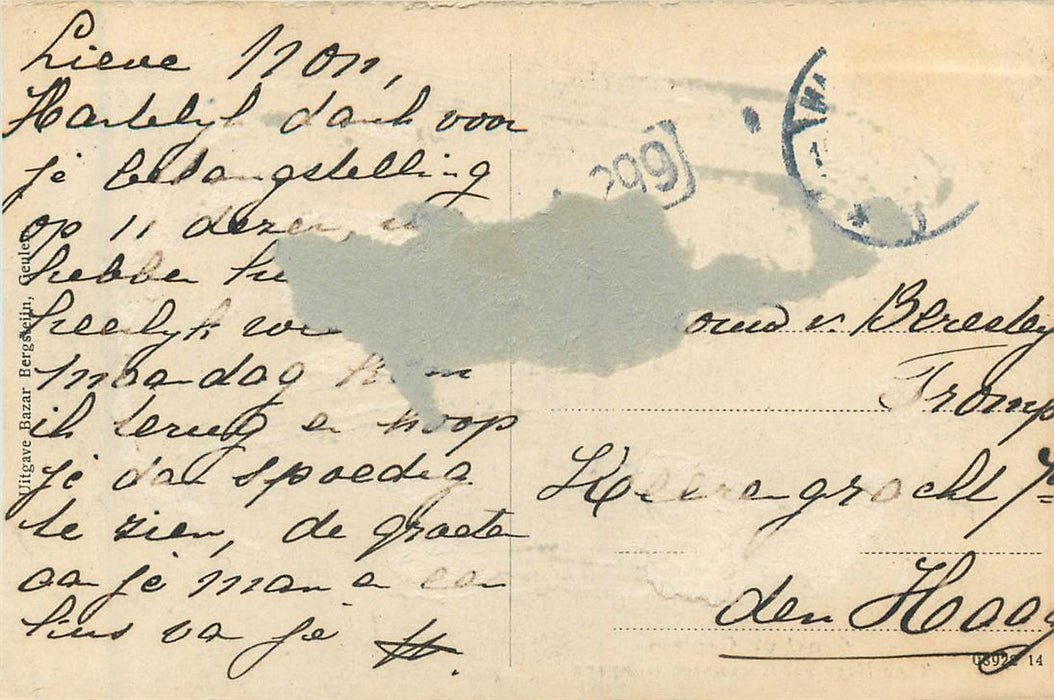 Lieve Non,
Hartelijk dank voor
je belangstelling
op 11 dezer,
hebben
heerlijk
maandag kom
ik terug en hoop
je dan spoedig
te zien, de groeten
aan je man en een
kus van je H.
Uitgave Bazar Bergsteijn, Geulem
299
HA
v. Beresteyn
Tromp
Heerengracht 7
den Haag
08922 14